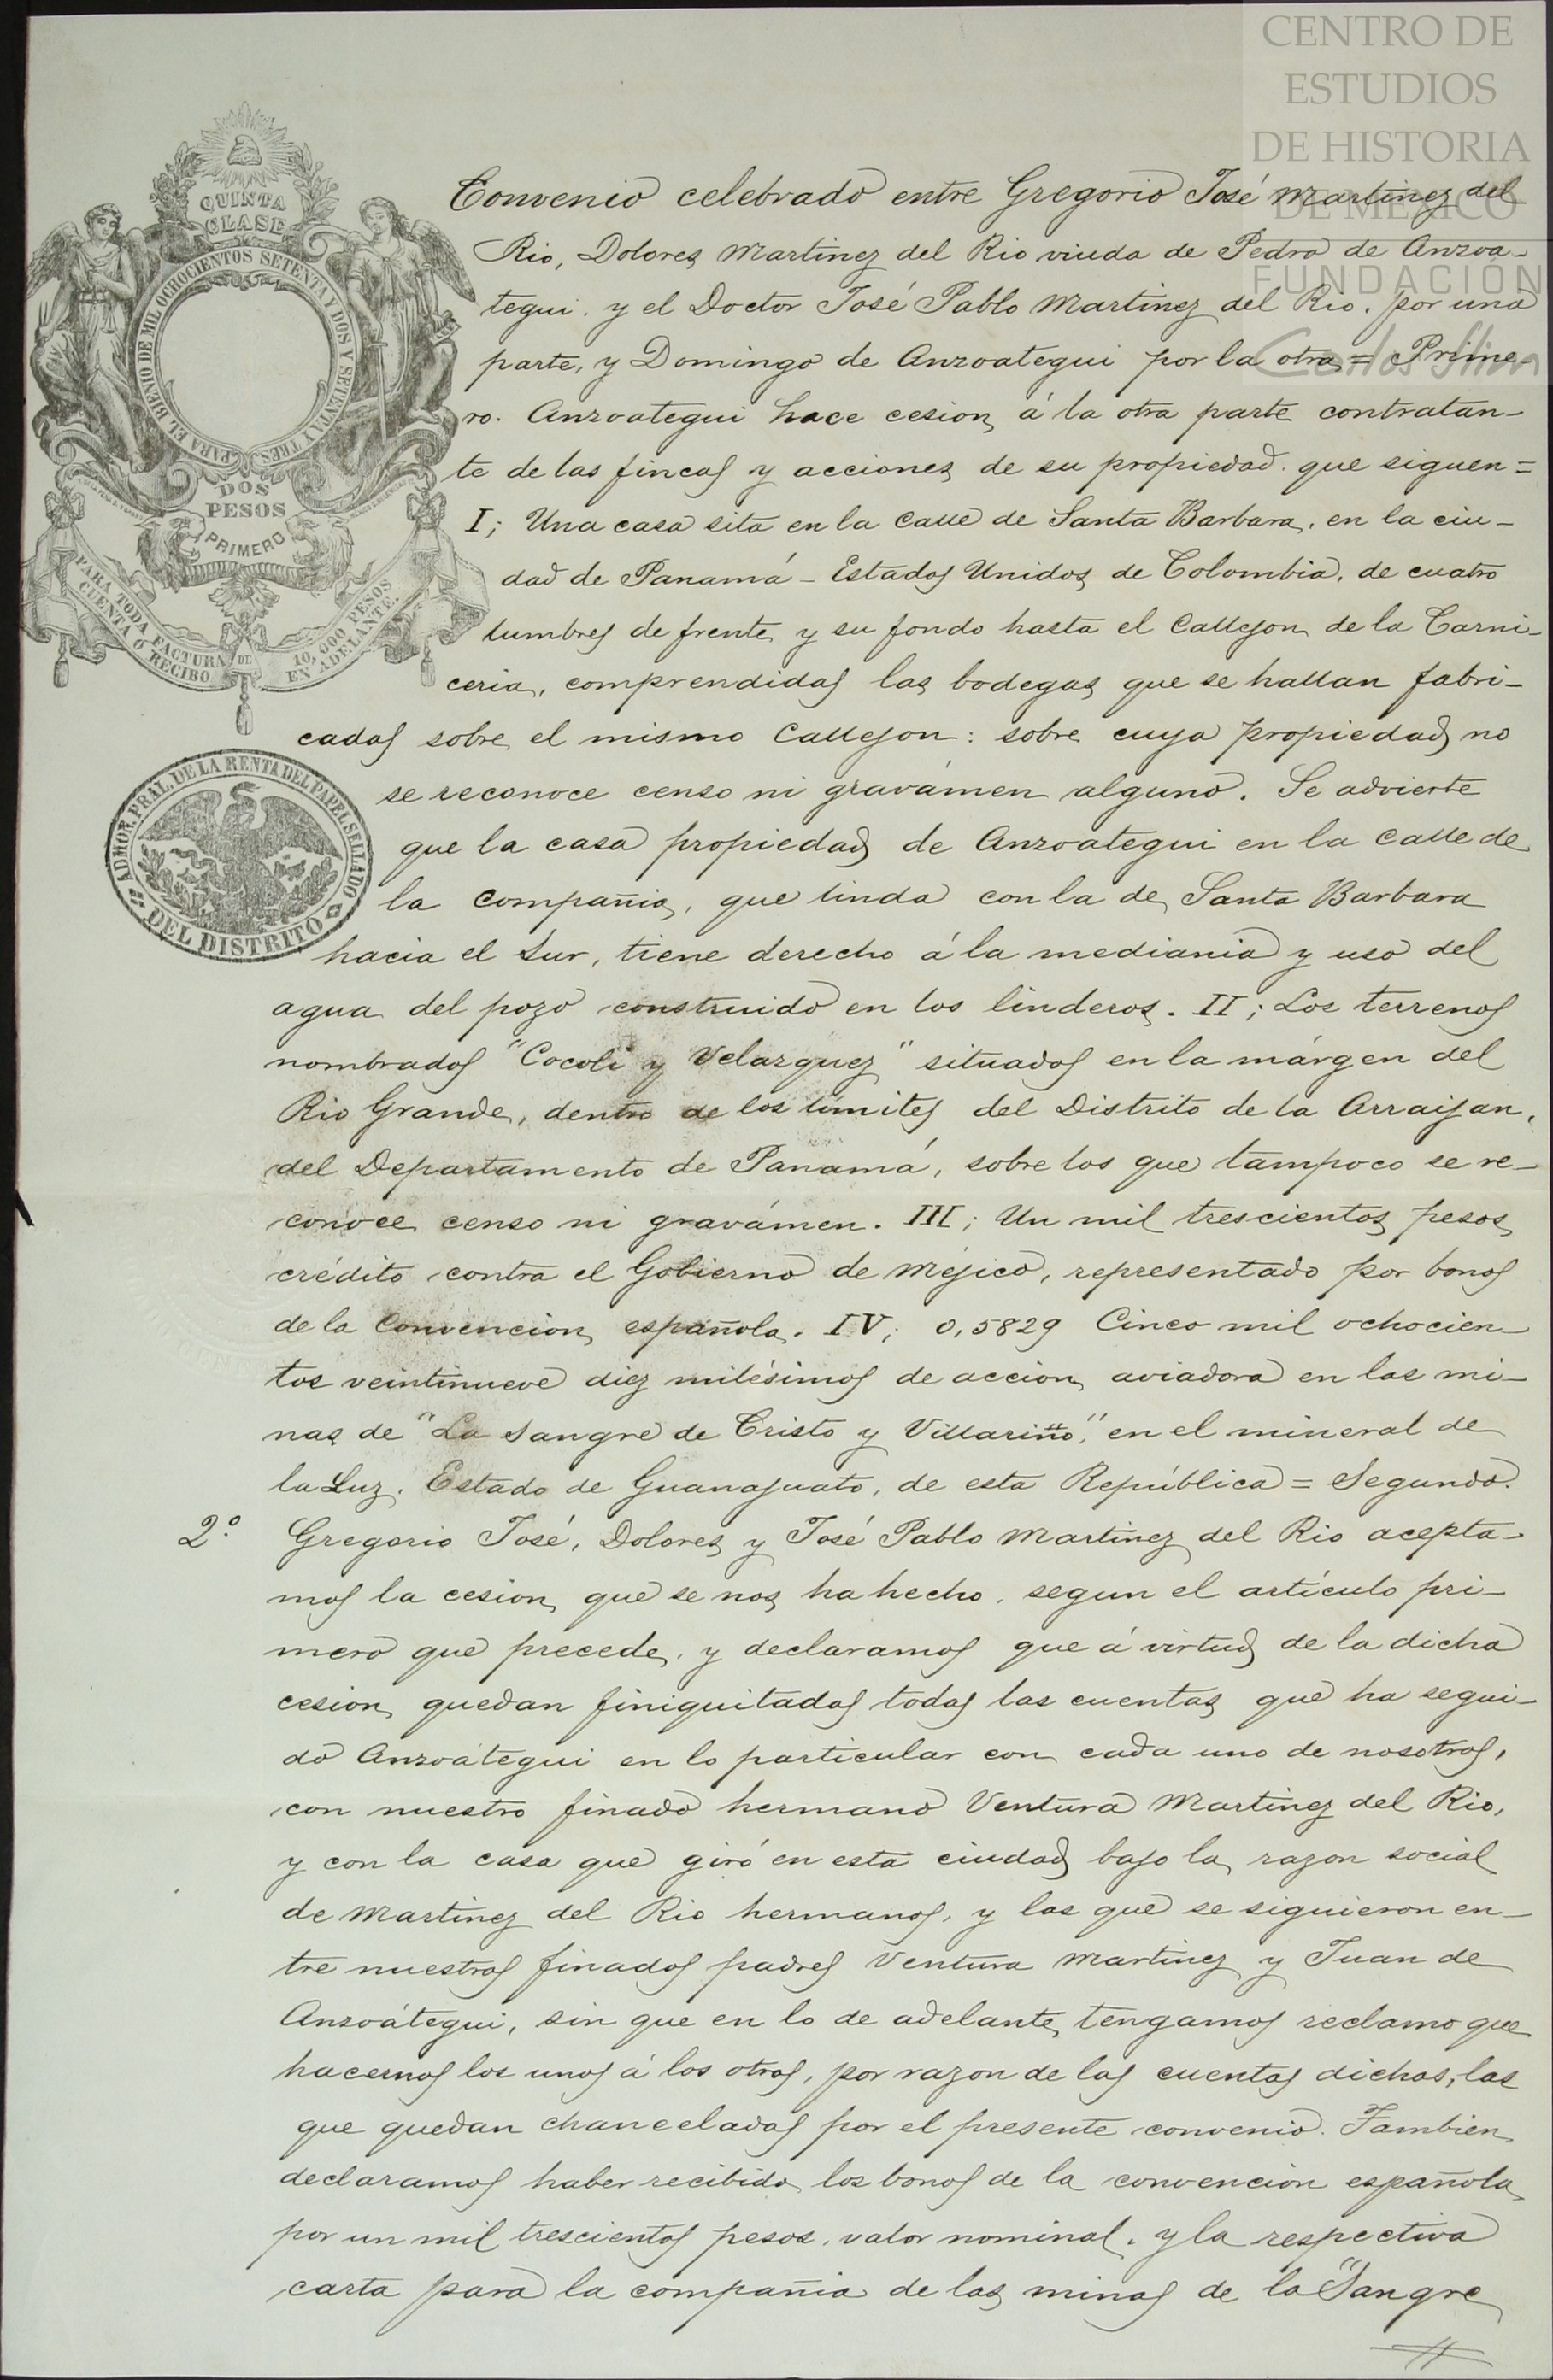 CENTRO DE
ESTUDIOS
DE HISTORIA
DE MÉXICO
FUNDACIÓN
Carlos Slim
QUINTA
CLASE
PARA EL BIENIO DE MIL OCHOCIENTOS SETENTA Y DOS Y SETENTA Y TRES
DOS
PESOS
PRIMERO
PARA TODA FACTURA DE 10,000 PESOS
CUENTA Ó RECIBO EN ADELANTE.
ADMON. PRAL. DE LA RENTA DEL PAPEL SELLADO
DEL DISTRITO
Convenio celebrado entre Gregorio José Martinez del
Rio, Dolores Martinez del Rio viuda de Pedro de Anzoa-
tegui. y el Doctor José Pablo Martinez del Rio. por una
parte, y Domingo de Anzoategui por la otra = Prime-
ro. Anzoategui hace cesion á la otra parte contratan-
te de las fincas y acciones de su propiedad. que siguen =
I; Una casa sita en la Calle de Santa Barbara, en la ciu-
dad de Panamá - Estados Unidos de Colombia, de cuatro
lumbres de frente y su fondo hasta el Callejon de la Carni-
ceria, comprendidas las bodegas que se hallan fabri-
cadas sobre el mismo Callejon: sobre cuya propiedad no
se reconoce censo ni gravámen alguno. Se advierte
que la casa propiedad de Anzoategui en la Calle de
la Compañia, que linda con la de Santa Barbara
hacia el Sur, tiene derecho á la mediania y uso del
agua del pozo construido en los linderos. II; Los terrenos
nombrados "Cocoli y Velazquez" situados en la márgen del
Rio Grande, dentro de los limites del Distrito de la Arraijan,
del Departamento de Panamá, sobre los que tampoco se re-
conoce censo ni gravámen. III; Un mil trescientos pesos
crédito contra el Gobierno de Méjico, representado por bonos
de la Convencion española. IV; 0,5829 Cinco mil ochocien-
tos veintinueve diez milésimos de accion aviadora en las mi-
nas de "La Sangre de Cristo y Villariño", en el mineral de
la Luz. Estado de Guanajuato, de esta República = Segundo.
2.º Gregorio José, Dolores y José Pablo Martinez del Rio acepta-
mos la cesion que se nos ha hecho, segun el artículo pri-
mero que precede, y declaramos que á virtud de la dicha
cesion quedan finiquitadas todas las cuentas que ha segui-
do Anzoátegui en lo particular con cada uno de nosotros,
con nuestro finado hermano Ventura Martinez del Rio,
y con la casa que giró en esta ciudad bajo la razon social
de Martinez del Rio hermanos, y las que se siguieron en-
tre nuestros finados padres Ventura Martinez y Juan de
Anzoátegui, sin que en lo de adelante tengamos reclamo que
hacernos los unos á los otros, por razon de las cuentas dichas, las
que quedan chanceladas por el presente convenio. Tambien
declaramos haber recibido los bonos de la convencion española
por un mil trescientos pesos, valor nominal, y la respectiva
carta para la compañia de las minas de la "Sangre